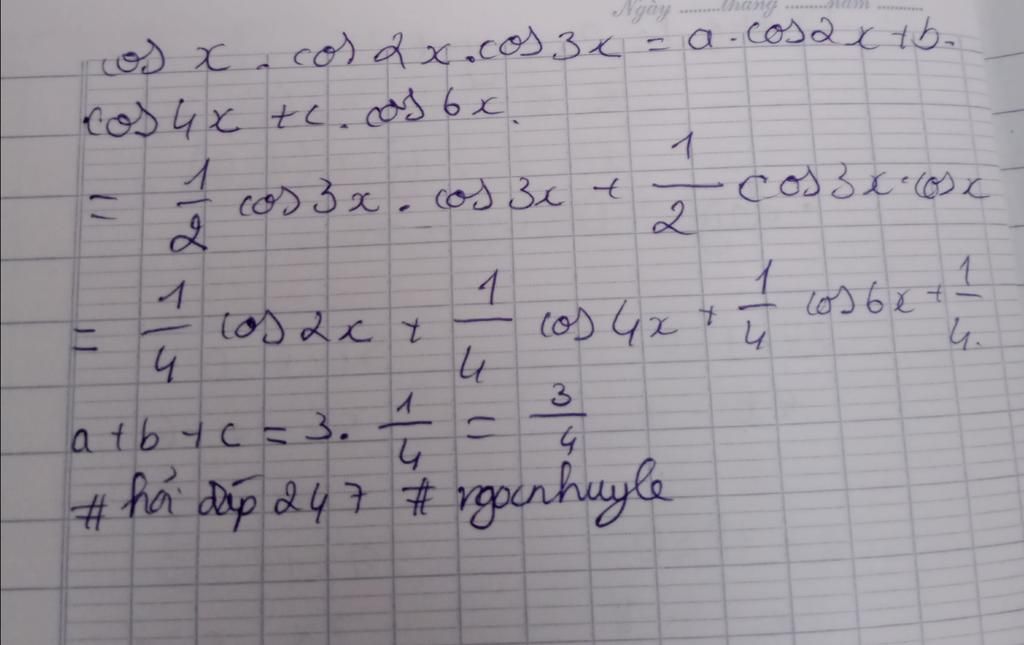 Ngày ........ tháng ........ năm ........
cos x . cos 2x . cos 3x = a . cos 2x + b .
cos 4x + c . cos 6x .
= 1/2 cos 3x . cos 3x + 1/2 cos 3x . cos x
= 1/4 cos 2x + 1/4 cos 4x + 1/4 cos 6x + 1/4 .
a + b + c = 3 . 1/4 = 3/4
# hỏi đáp 247 # ngocnhuyle